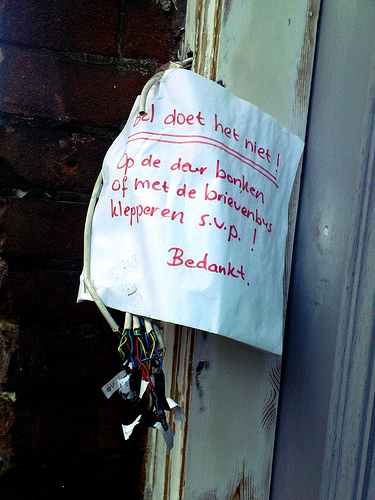 Bel doet het niet!
Op de deur bonken
of met de brievenbus
klepperen s.v.p. !
Bedankt.